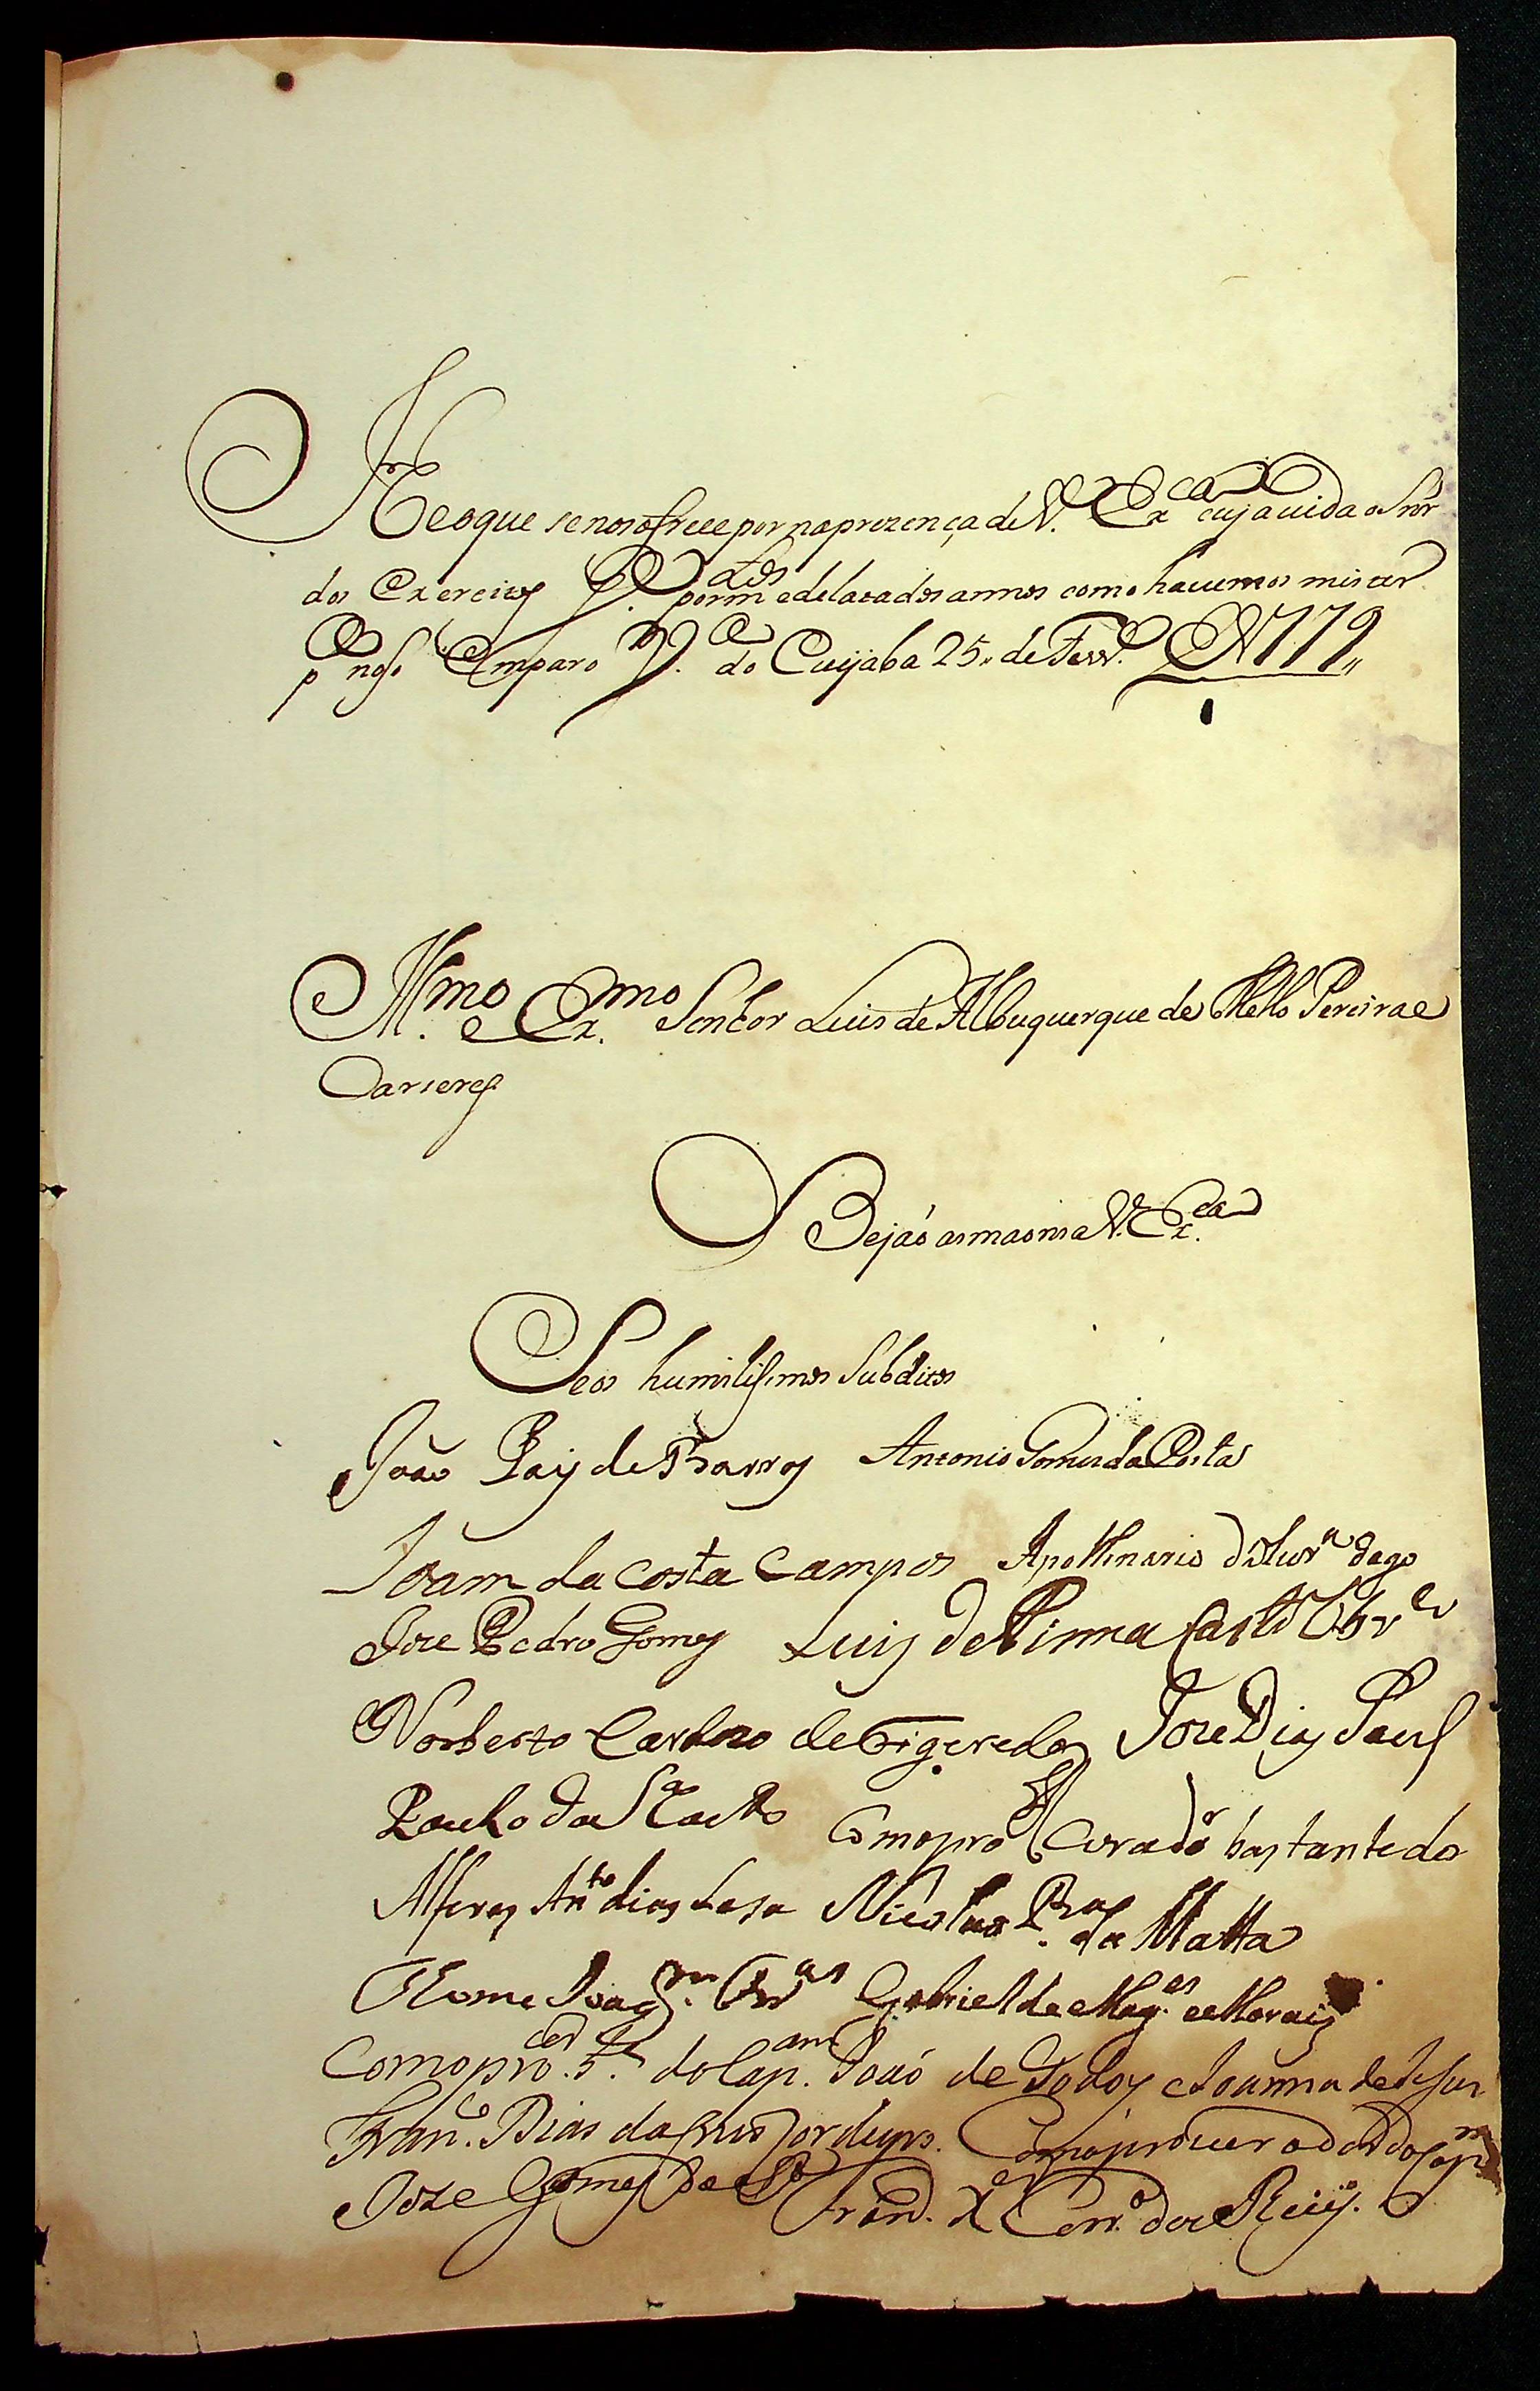 He o que se nos ofrece por na prezença de V. Exca cuja vida o Snr
dos Exercitos G. por m.tos e delatados annos como havemos mister
pa noso Amparo Va do Cuyaba 25 de Fevro 1779
Illmo e Exmo Senhor Luis de Albuquerque de Mello Pereira e
Carceres
Bejaõ as maons a V. Exca
Seos humilisimos Subditos
João Pais de Barros Antonio Gomes da Costa
Joam da Costa Campos Apollinario
Joze Pedro Gomes Luis de Pinna Castel
Norberto Cardozo de Figeredo Joze Dias Paes
Paulo da
Como procurador bastante do
Alferes Anto dias Lesa Nicolao Pra da Matta
Thome Joaqm Gabriel de Mag.es e Morais
Como procdor do Capam João de Godoy
Franco Dias da Como procurador do Capm
Joze Gomes da Sa